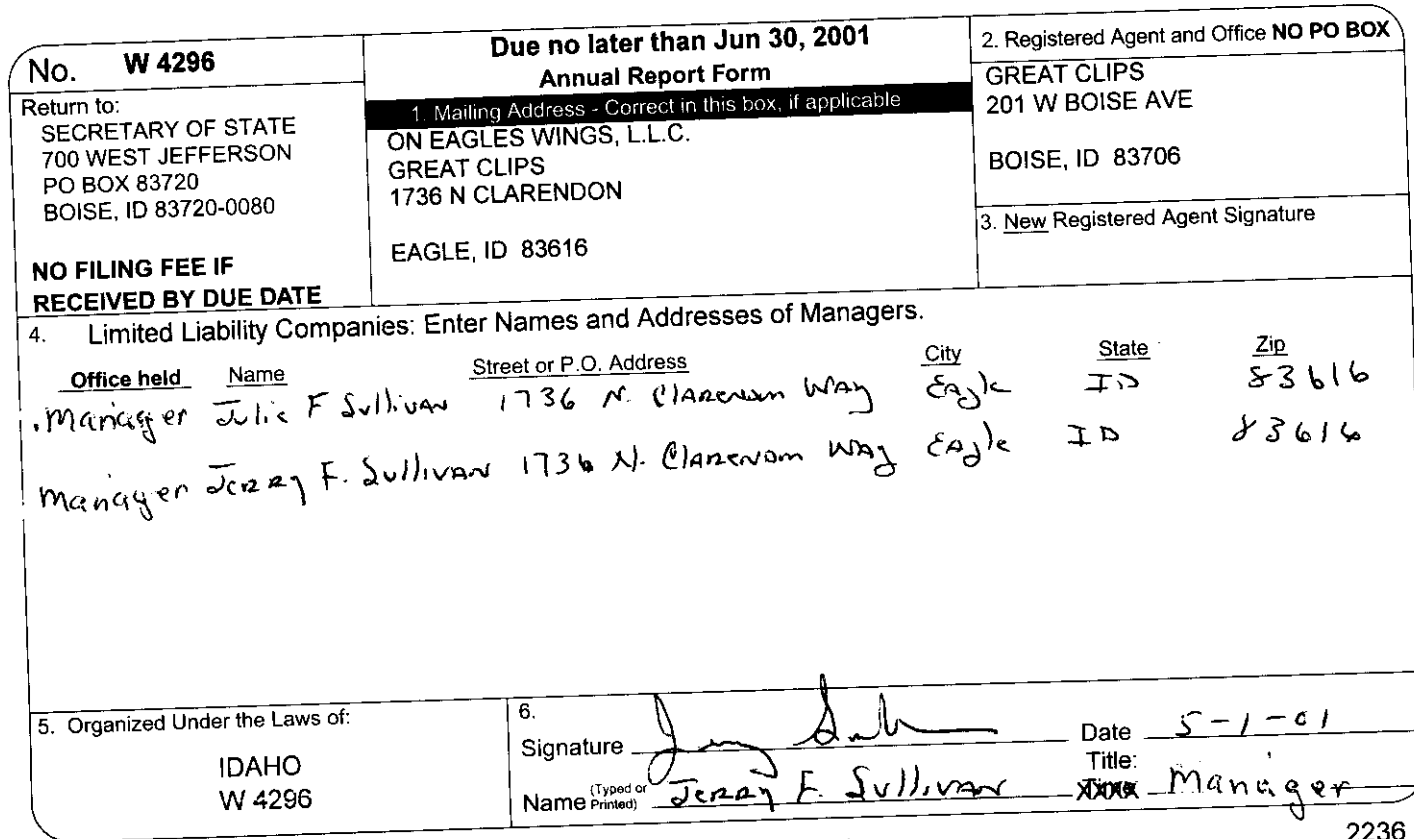 No. W 4296
Return to:
SECRETARY OF STATE
700 WEST JEFFERSON
PO BOX 83720
BOISE, ID 83720-0080
NO FILING FEE IF
RECEIVED BY DUE DATE
Due no later than Jun 30, 2001
Annual Report Form
1. Mailing Address - Correct in this box, if applicable
ON EAGLES WINGS, L.L.C.
GREAT CLIPS
1736 N CLARENDON
EAGLE, ID 83616
2. Registered Agent and Office NO PO BOX
GREAT CLIPS
201 W BOISE AVE
BOISE, ID 83706
3. New Registered Agent Signature
4. Limited Liability Companies: Enter Names and Addresses of Managers.
Office held Name Street or P.O. Address City State Zip
Manager Julie F Sullivan 1736 N. Way Eagle ID 83616
Manager Jerry F. Sullivan 1736 N. Way Eagle ID 83616
5. Organized Under the Laws of:
IDAHO
W 4296
6.
Signature Date 5-1-01
Title:
Name (Typed or Printed) Jerry F. Sullivan Manager
2236